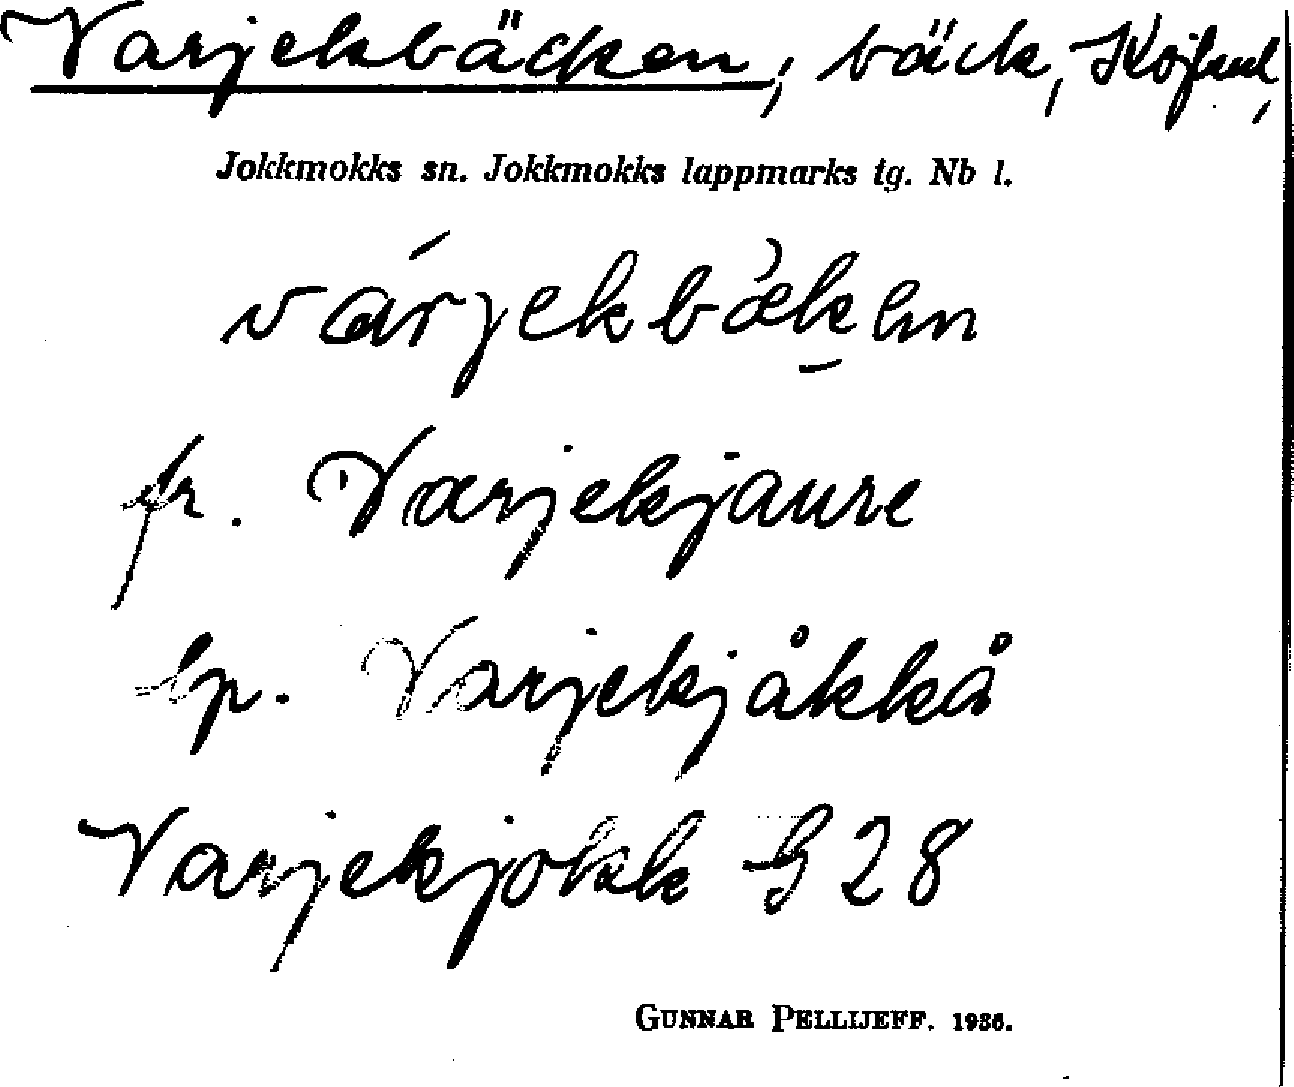 Varjekbäcken, bäck,
Jokkmokks sn. Jokkmokks lappmarks tg. Nb l.
várjekbæken
fr. Varjekjaure
lp. Varjekjåkkå
Varjekjokk G 28
GUNNAR PELLIJEFF. 1936.